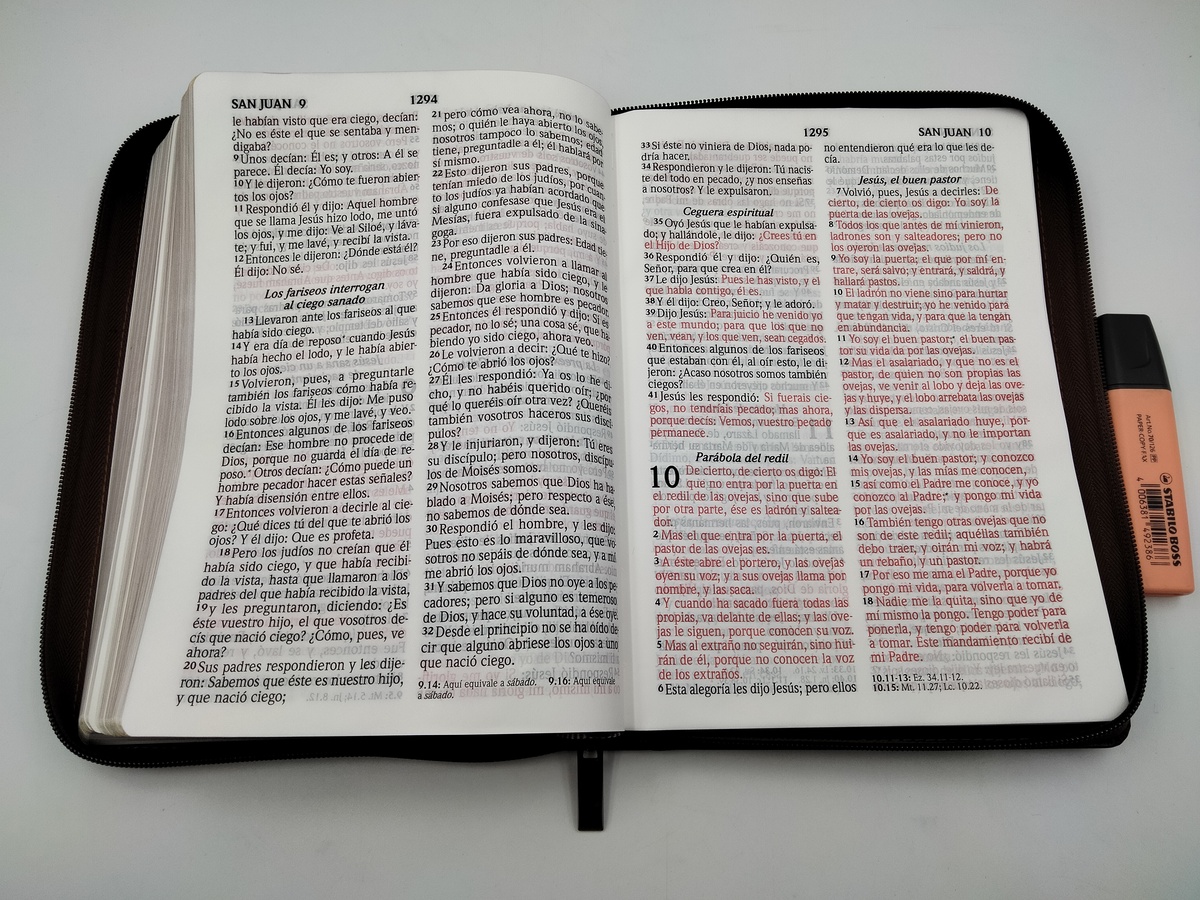 SAN JUAN 9
1294
le habían visto que era ciego, decían:
¿No es éste el que se sentaba y men-
digaba?
9 Unos decían: Él es; y otros: A él se
parece. Él decía: Yo soy.
10 Y le dijeron: ¿Cómo te fueron abier-
tos los ojos?
11 Respondió él y dijo: Aquel hombre
que se llama Jesús hizo lodo, me untó
los ojos, y me dijo: Ve al Siloé, y láva-
te; y fui, y me lavé, y recibí la vista.
12 Entonces le dijeron: ¿Dónde está él?
Él dijo: No sé.
Los fariseos interrogan
al ciego sanado
13 Llevaron ante los fariseos al que
había sido ciego.
14 Y era día de reposo* cuando Jesús
había hecho el lodo, y le había abier-
to los ojos.
15 Volvieron, pues, a preguntarle
también los fariseos cómo había re-
cibido la vista. Él les dijo: Me puso
lodo sobre los ojos, y me lavé, y veo.
16 Entonces algunos de los fariseos
decían: Ese hombre no procede de
Dios, porque no guarda el día de re-
poso.* Otros decían: ¿Cómo puede un
hombre pecador hacer estas señales?
Y había disensión entre ellos.
17 Entonces volvieron a decirle al cie-
go: ¿Qué dices tú del que te abrió los
ojos? Y él dijo: Que es profeta.
18 Pero los judíos no creían que él
había sido ciego, y que había recibi-
do la vista, hasta que llamaron a los
padres del que había recibido la vista,
19 y les preguntaron, diciendo: ¿Es
éste vuestro hijo, el que vosotros de-
cís que nació ciego? ¿Cómo, pues, ve
ahora?
20 Sus padres respondieron y les dije-
ron: Sabemos que éste es nuestro hijo,
y que nació ciego;
21 pero cómo vea ahora, no lo sabe-
mos; o quién le haya abierto los ojos,
nosotros tampoco lo sabemos; edad
tiene, preguntadle a él; él hablará por
sí mismo.
22 Esto dijeron sus padres, porque
tenían miedo de los judíos, por cuan-
to los judíos ya habían acordado que
si alguno confesase que Jesús era el
Mesías, fuera expulsado de la sina-
goga.
23 Por eso dijeron sus padres: Edad tie-
ne, preguntadle a él.
24 Entonces volvieron a llamar al
hombre que había sido ciego, y le
dijeron: Da gloria a Dios; nosotros
sabemos que ese hombre es pecador.
25 Entonces él respondió y dijo: Si es
pecador, no lo sé; una cosa sé, que ha-
biendo yo sido ciego, ahora veo.
26 Le volvieron a decir: ¿Qué te hizo?
¿Cómo te abrió los ojos?
27 Él les respondió: Ya os lo he di-
cho, y no habéis querido oír; ¿por
qué lo queréis oír otra vez? ¿Queréis
también vosotros haceros sus discí-
pulos?
28 Y le injuriaron, y dijeron: Tú eres
su discípulo; pero nosotros, discípu-
los de Moisés somos.
29 Nosotros sabemos que Dios ha ha-
blado a Moisés; pero respecto a ése,
no sabemos de dónde sea.
30 Respondió el hombre, y les dijo:
Pues esto es lo maravilloso, que vo-
sotros no sepáis de dónde sea, y a mí
me abrió los ojos.
31 Y sabemos que Dios no oye a los pe-
cadores; pero si alguno es temeroso
de Dios, y hace su voluntad, a ése oye.
32 Desde el principio no se ha oído de-
cir que alguno abriese los ojos a uno
que nació ciego.
9.14: Aquí equivale a sábado. 9.16: Aquí equivale
a sábado.
1295
SAN JUAN 10
33 Si éste no viniera de Dios, nada po-
dría hacer.
34 Respondieron y le dijeron: Tú nacis-
te del todo en pecado, ¿y nos enseñas
a nosotros? Y le expulsaron.
Ceguera espiritual
35 Oyó Jesús que le habían expulsa-
do; y hallándole, le dijo: ¿Crees tú en
el Hijo de Dios?
36 Respondió él y dijo: ¿Quién es,
Señor, para que crea en él?
37 Le dijo Jesús: Pues le has visto, y el
que habla contigo, él es.
38 Y él dijo: Creo, Señor; y le adoró.
39 Dijo Jesús: Para juicio he venido yo
a este mundo; para que los que no
ven, vean, y los que ven, sean cegados.
40 Entonces algunos de los fariseos
que estaban con él, al oír esto, le di-
jeron: ¿Acaso nosotros somos también
ciegos?
41 Jesús les respondió: Si fuerais cie-
gos, no tendríais pecado; mas ahora,
porque decís: Vemos, vuestro pecado
permanece.
Parábola del redil
10 De cierto, de cierto os digo: El
que no entra por la puerta en
el redil de las ovejas, sino que sube
por otra parte, ése es ladrón y saltea-
dor.
2 Mas el que entra por la puerta, el
pastor de las ovejas es.
3 A éste abre el portero, y las ovejas
oyen su voz; y a sus ovejas llama por
nombre, y las saca.
4 Y cuando ha sacado fuera todas las
propias, va delante de ellas; y las ove-
jas le siguen, porque conocen su voz.
5 Mas al extraño no seguirán, sino hui-
rán de él, porque no conocen la voz
de los extraños.
6 Esta alegoría les dijo Jesús; pero ellos
no entendieron qué era lo que les de-
cía.
Jesús, el buen pastor
7 Volvió, pues, Jesús a decirles: De
cierto, de cierto os digo: Yo soy la
puerta de las ovejas.
8 Todos los que antes de mí vinieron,
ladrones son y salteadores; pero no
los oyeron las ovejas.
9 Yo soy la puerta; el que por mí en-
trare, será salvo; y entrará, y saldrá, y
hallará pastos.
10 El ladrón no viene sino para hurtar
y matar y destruir; yo he venido para
que tengan vida, y para que la tengan
en abundancia.
11 Yo soy el buen pastor;* el buen pas-
tor su vida da por las ovejas.
12 Mas el asalariado, y que no es el
pastor, de quien no son propias las
ovejas, ve venir al lobo y deja las ove-
jas y huye, y el lobo arrebata las ovejas
y las dispersa.
13 Así que el asalariado huye, por-
que es asalariado, y no le importan
las ovejas.
14 Yo soy el buen pastor; y conozco
mis ovejas, y las mías me conocen,
15 así como el Padre me conoce, y yo
conozco al Padre;* y pongo mi vida
por las ovejas.
16 También tengo otras ovejas que no
son de este redil; aquéllas también
debo traer, y oirán mi voz; y habrá
un rebaño, y un pastor.
17 Por eso me ama el Padre, porque yo
pongo mi vida, para volverla a tomar.
18 Nadie me la quita, sino que yo de
mí mismo la pongo. Tengo poder para
ponerla, y tengo poder para volverla
a tomar. Este mandamiento recibí de
mi Padre.
10.11-13: Ez. 34.11-12.
10.15: Mt. 11.27; Lc. 10.22.
STABILO BOSS
Art.No. 70/126
PAPER·COPY·FAX
4 006381 492386